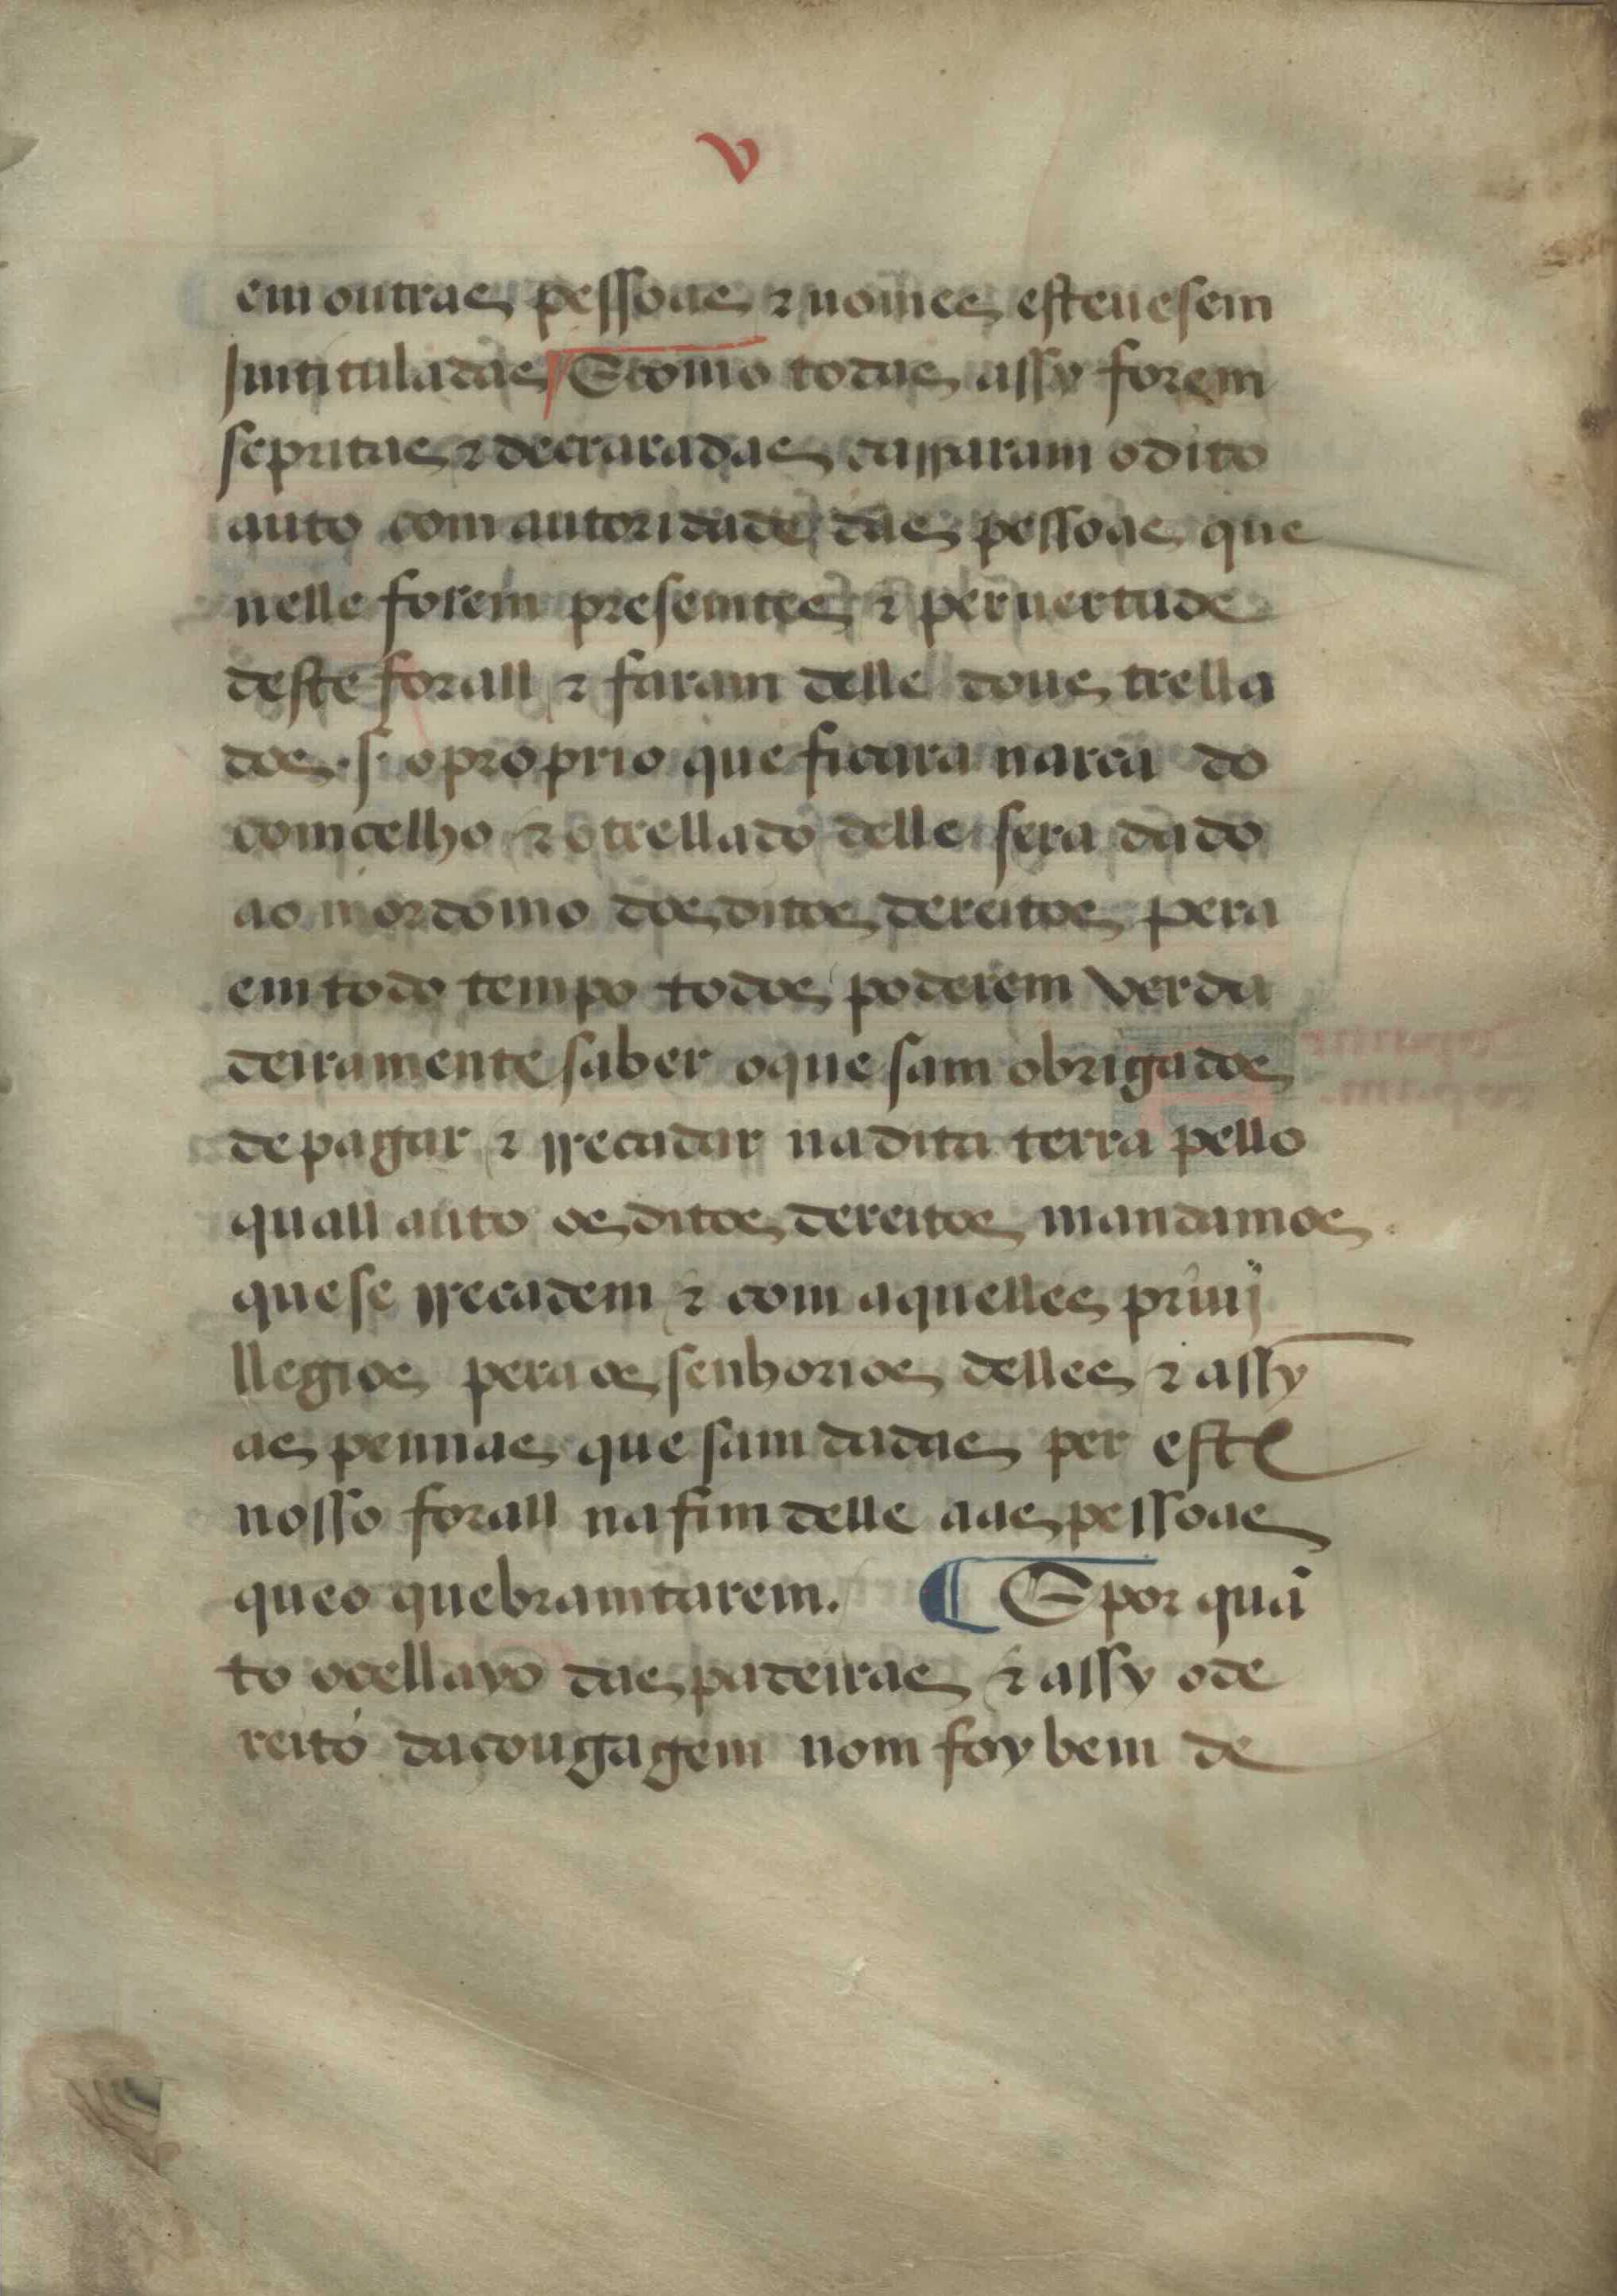 v
em outras pessoas ⁊ nomes esteuesem
Jntituladas E como todas assy forem
scpritas ⁊ decraradas çarraram o dito
auto com autoridade das pessoas que
nelle forem presemtes ⁊ per vertude
deste forall ⁊ faram delle dous trella
dos .s. o proprio que ficara narca do
comcelho ⁊ o trellado delle sera dado
ao mordomo dos ditos dereitos pera
em todo tempo todos poderem verda
deiramente saber o que sam obrigados
de pagar ⁊ rrecadar na dita terra pello
quall auto os ditos dereitos mandamos
que se rrecadem ⁊ com aquelles priuj
llegios pera os senhorios delles ⁊ assy
as pennas que sam dadas per este
nosso forall na fim delle aas pessoas
que o quebramtarem. ¶ E por quã
to o cellayo das padeiras ⁊ assy o de
reito daçougagem nom foy bem de